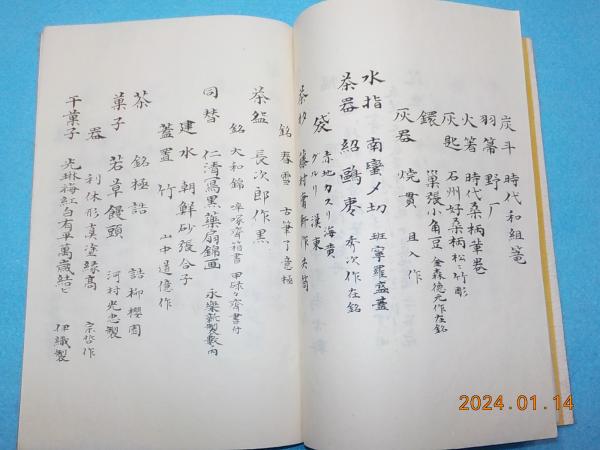 炭斗 時代和組篭
羽箒 野ガン
火箸 時代桑柄華卷
灰匙 石州好桑柄 松ニ竹彫
鐶 巢張小角豆 金森德元作在銘
灰器 焼貫 且入作
水指 南蛮〆切 班寧羅盔蓋
茶器 紹鷗棗 秀次作在銘
袋 赤地カスリ海黄
グルリ 漢東
茶杓 藤村庸軒作共筒
銘 春雪 古筆了意極
茶盌 長次郎作黒
銘 大和錦 啐啄斎箱書
同替 仁清寫黒藥扇錦画 永樂新製敷内
建水 朝鮮砂張合子
蓋置 竹 山中道億作
茶 銘極詰 詰柳櫻園
菓子 若草饅頭 河村光忠製
器 利休形真塗縁高 宗哲作
干菓子 光琳梅紅白有平萬歳結ヒ 伊織製
2024.01.14